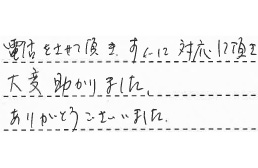 電話をさせて頂き、すぐに対応して頂き
大変助かりました。
ありがとうございました。